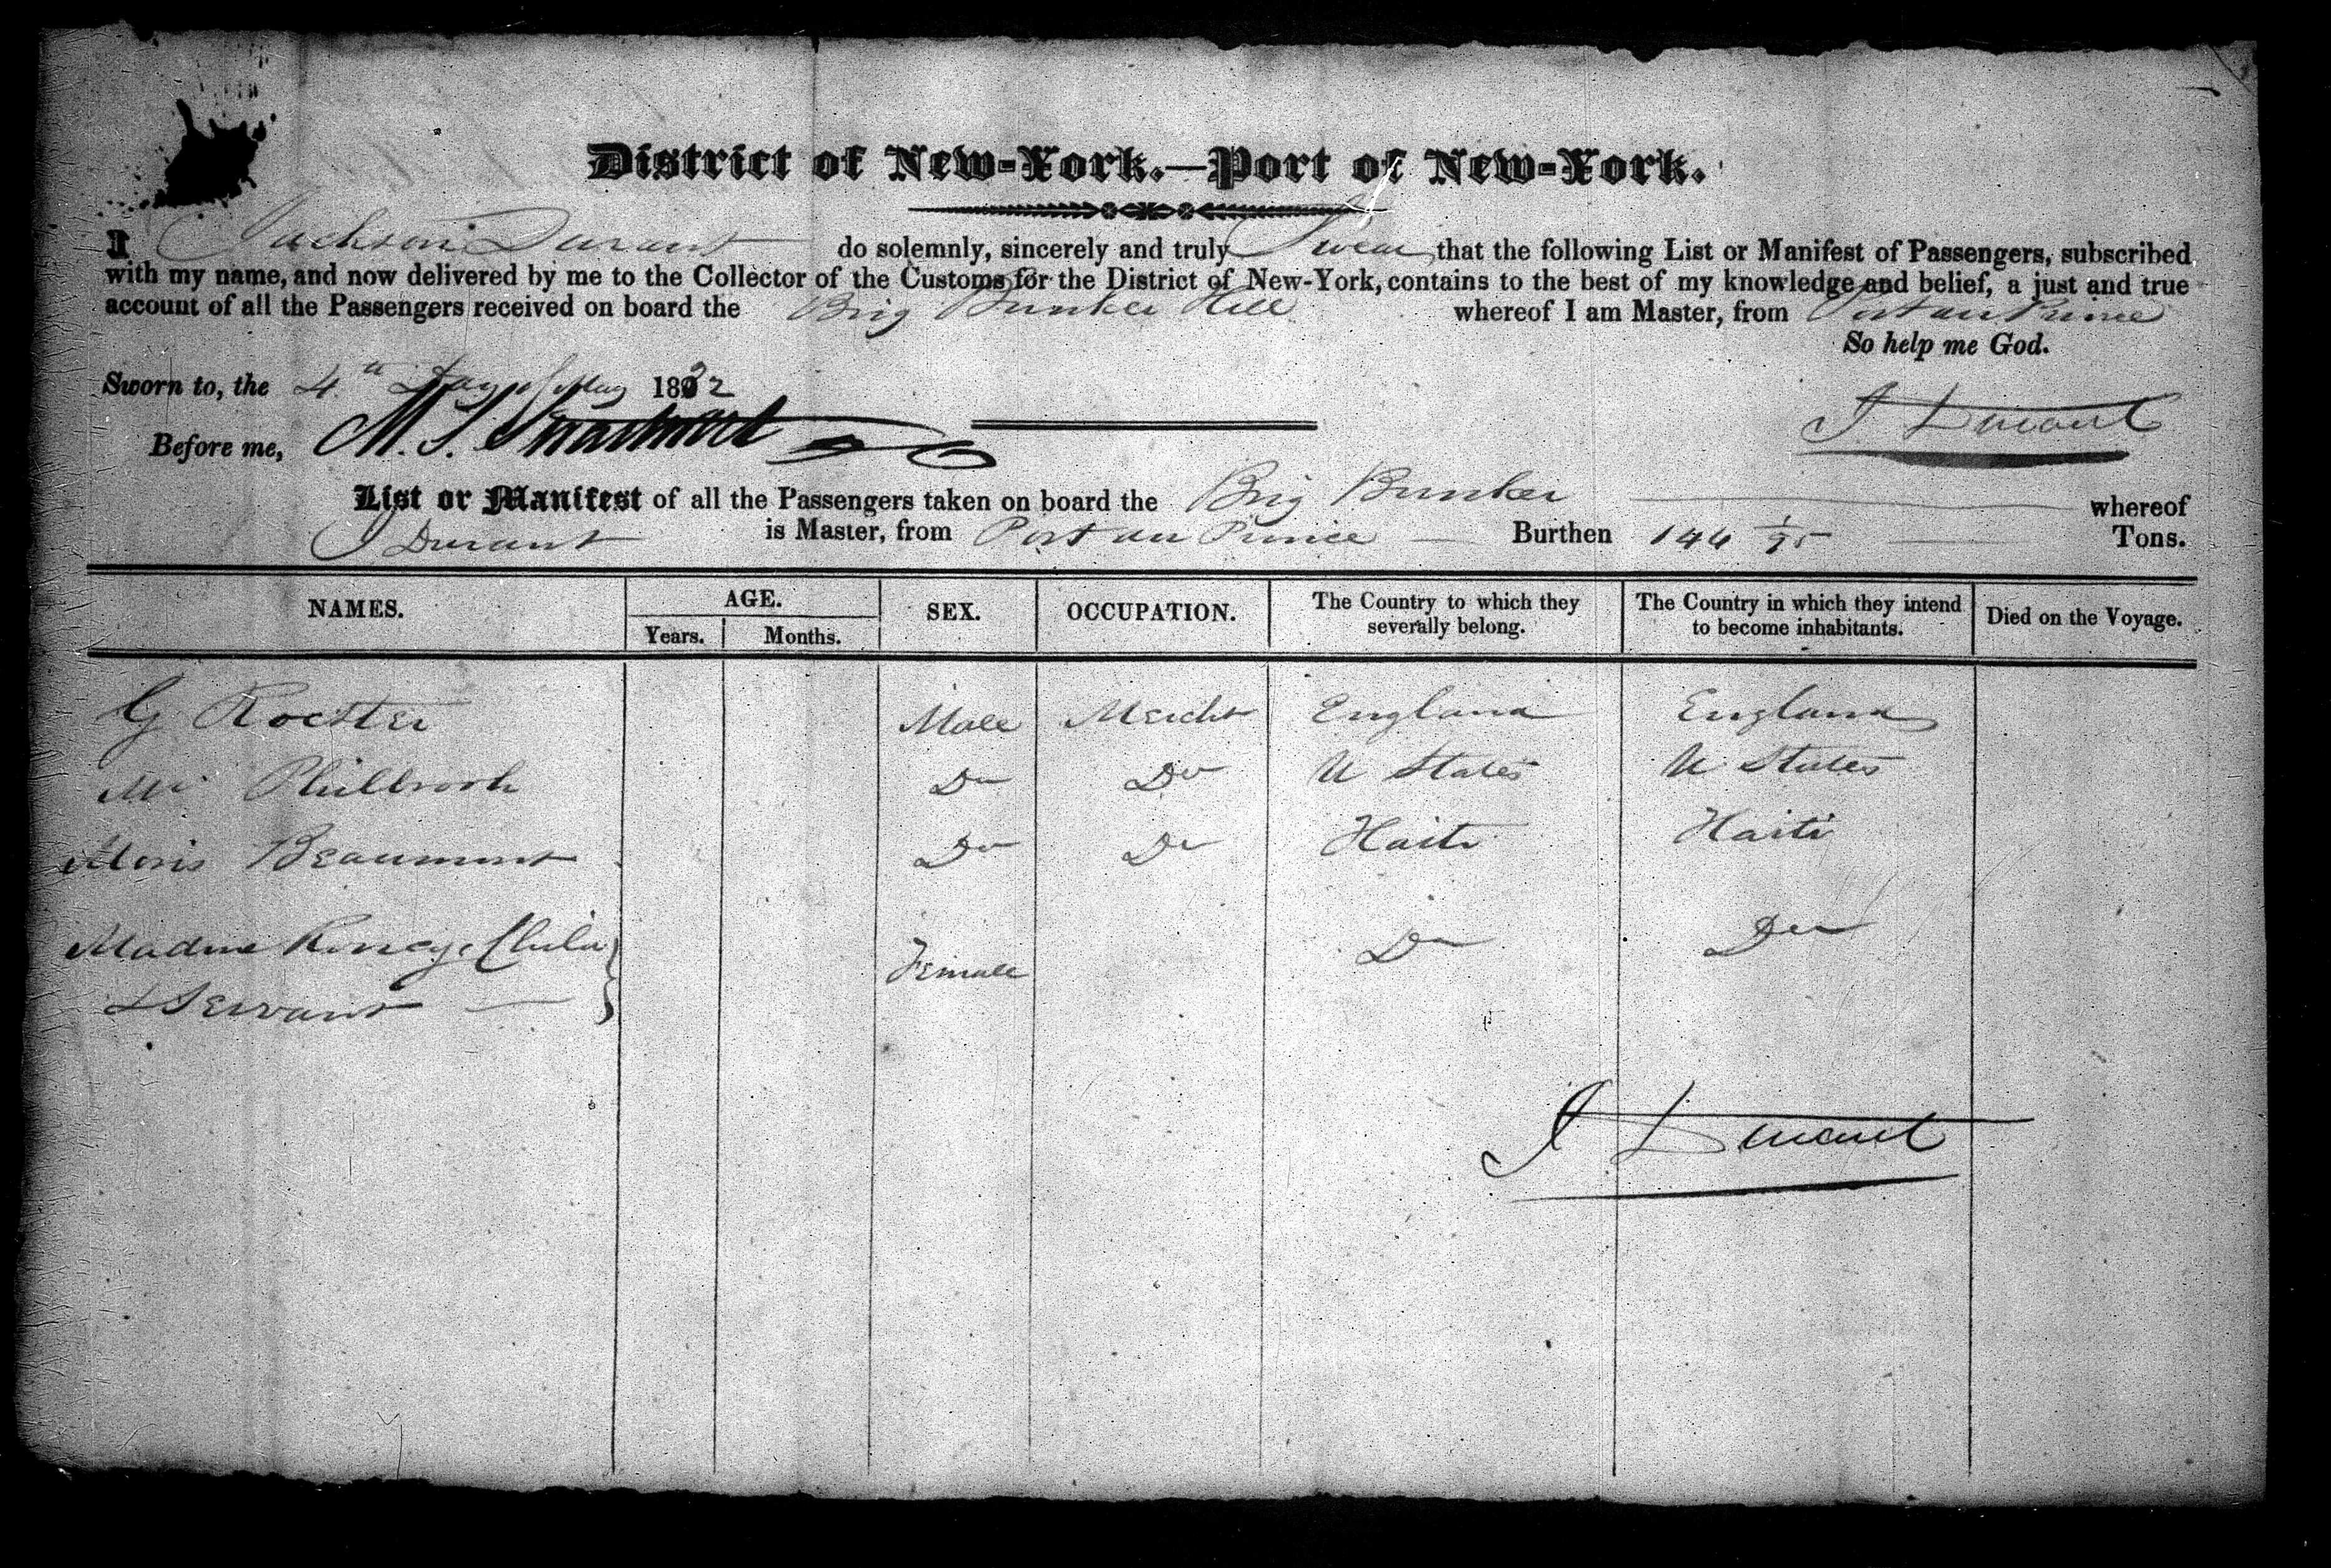 District of New-York.—Port of New-York.
I Jackson Durant do solemnly, sincerely and truly Swear that the following List or Manifest of Passengers, subscribed
with my name, and now delivered by me to the Collector of the Customs for the District of New-York, contains to the best of my knowledge and belief, a just and true
account of all the Passengers received on board the Brig Bunker Hill whereof I am Master, from Port au Prince
So help me God.
Sworn to, the 4th Day of May 1832
J Durant
Before me, M. S.
List or Manifest of all the Passengers taken on board the Brig Bunker whereof
J Durant is Master, from Port au Prince Burthen 144 1/95 Tons.
NAMES. AGE. SEX. OCCUPATION. The Country to which they severally belong. The Country in which they intend to become inhabitants. Died on the Voyage.
Years. Months.
G Rocster Male Mercht England England
Mr Philbrook Do Do U States U States
Beaumont Do Do Haiti Haiti
Madme Child Female Do Do
& Servant
J Durant